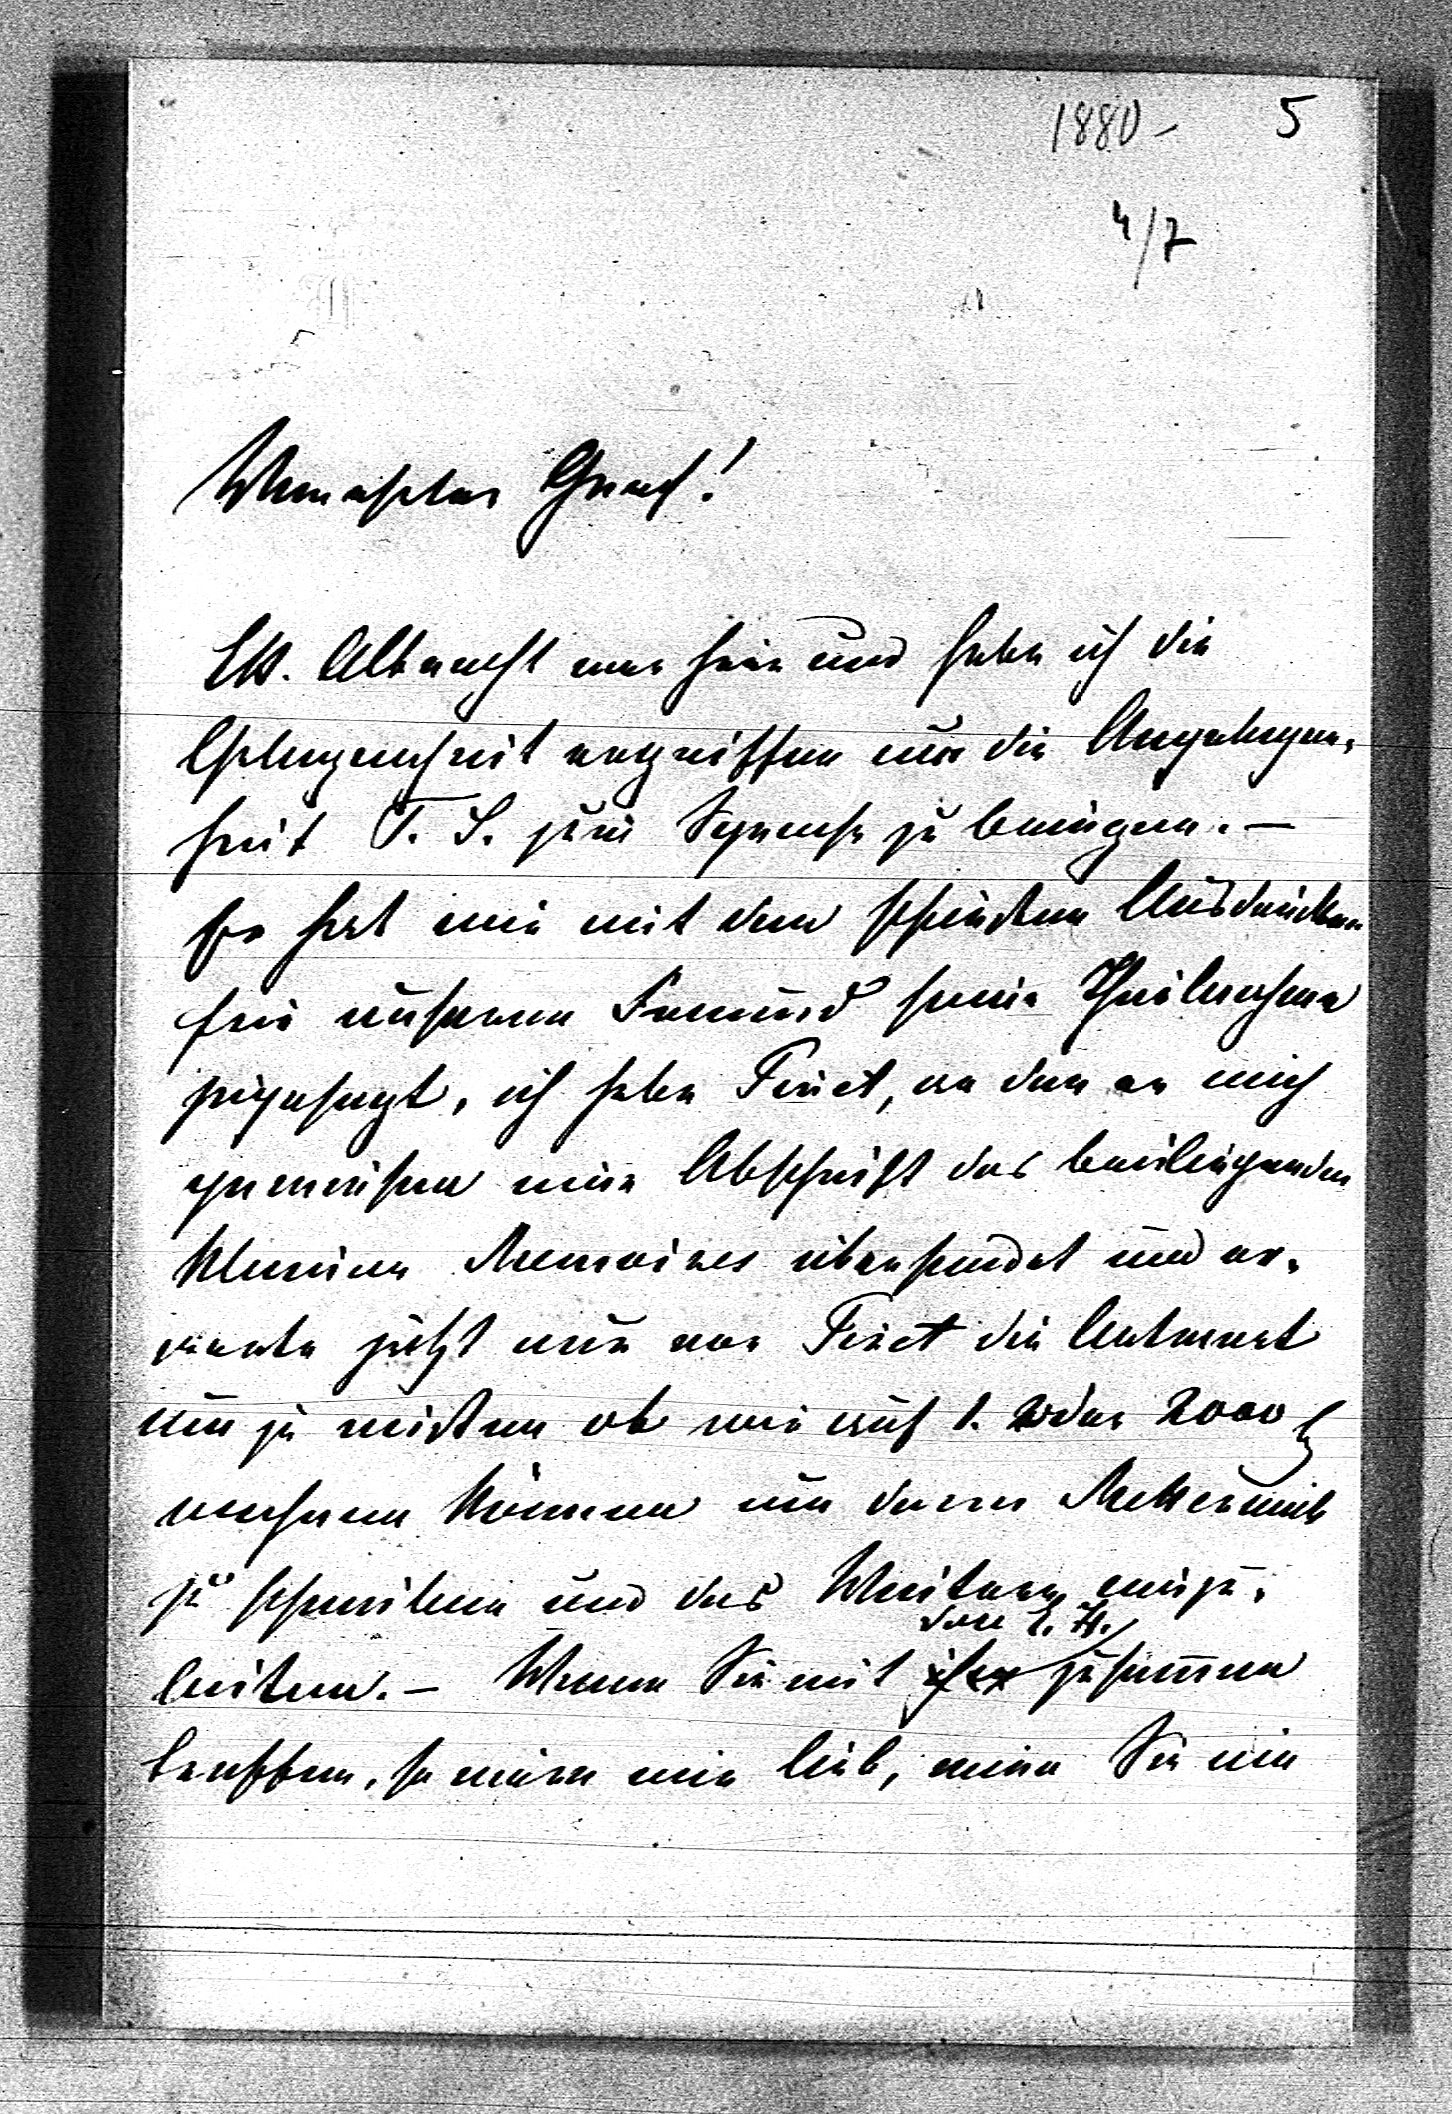 1880 - 5
4/7
Verehrter Graf!
EH. Albrecht war hier und habe ich die
Gelegenheit ergriffen um die Angelegen-
heit T. S. zur Sprache zu bringen. —
Er hat mir mit den schönsten Ausdrücken
für unseren Freund seine Theilnahme
zugesagt, ich habe Fürst, an den er mich
gewiesen eine Abschrift des beiliegenden
kleinen Memoires übersendet und er-
warte jetzt nur von Fürst die Antwort
um zu wissen ob wir auf 1. oder 2000 f
rechnen können um dann
zu schreiben und das Weitere einzu-
leiten. – Wenn Sie mit ihm zusammen
dem E. H.
treffen, so wäre mir lieb, wenn Sie nie